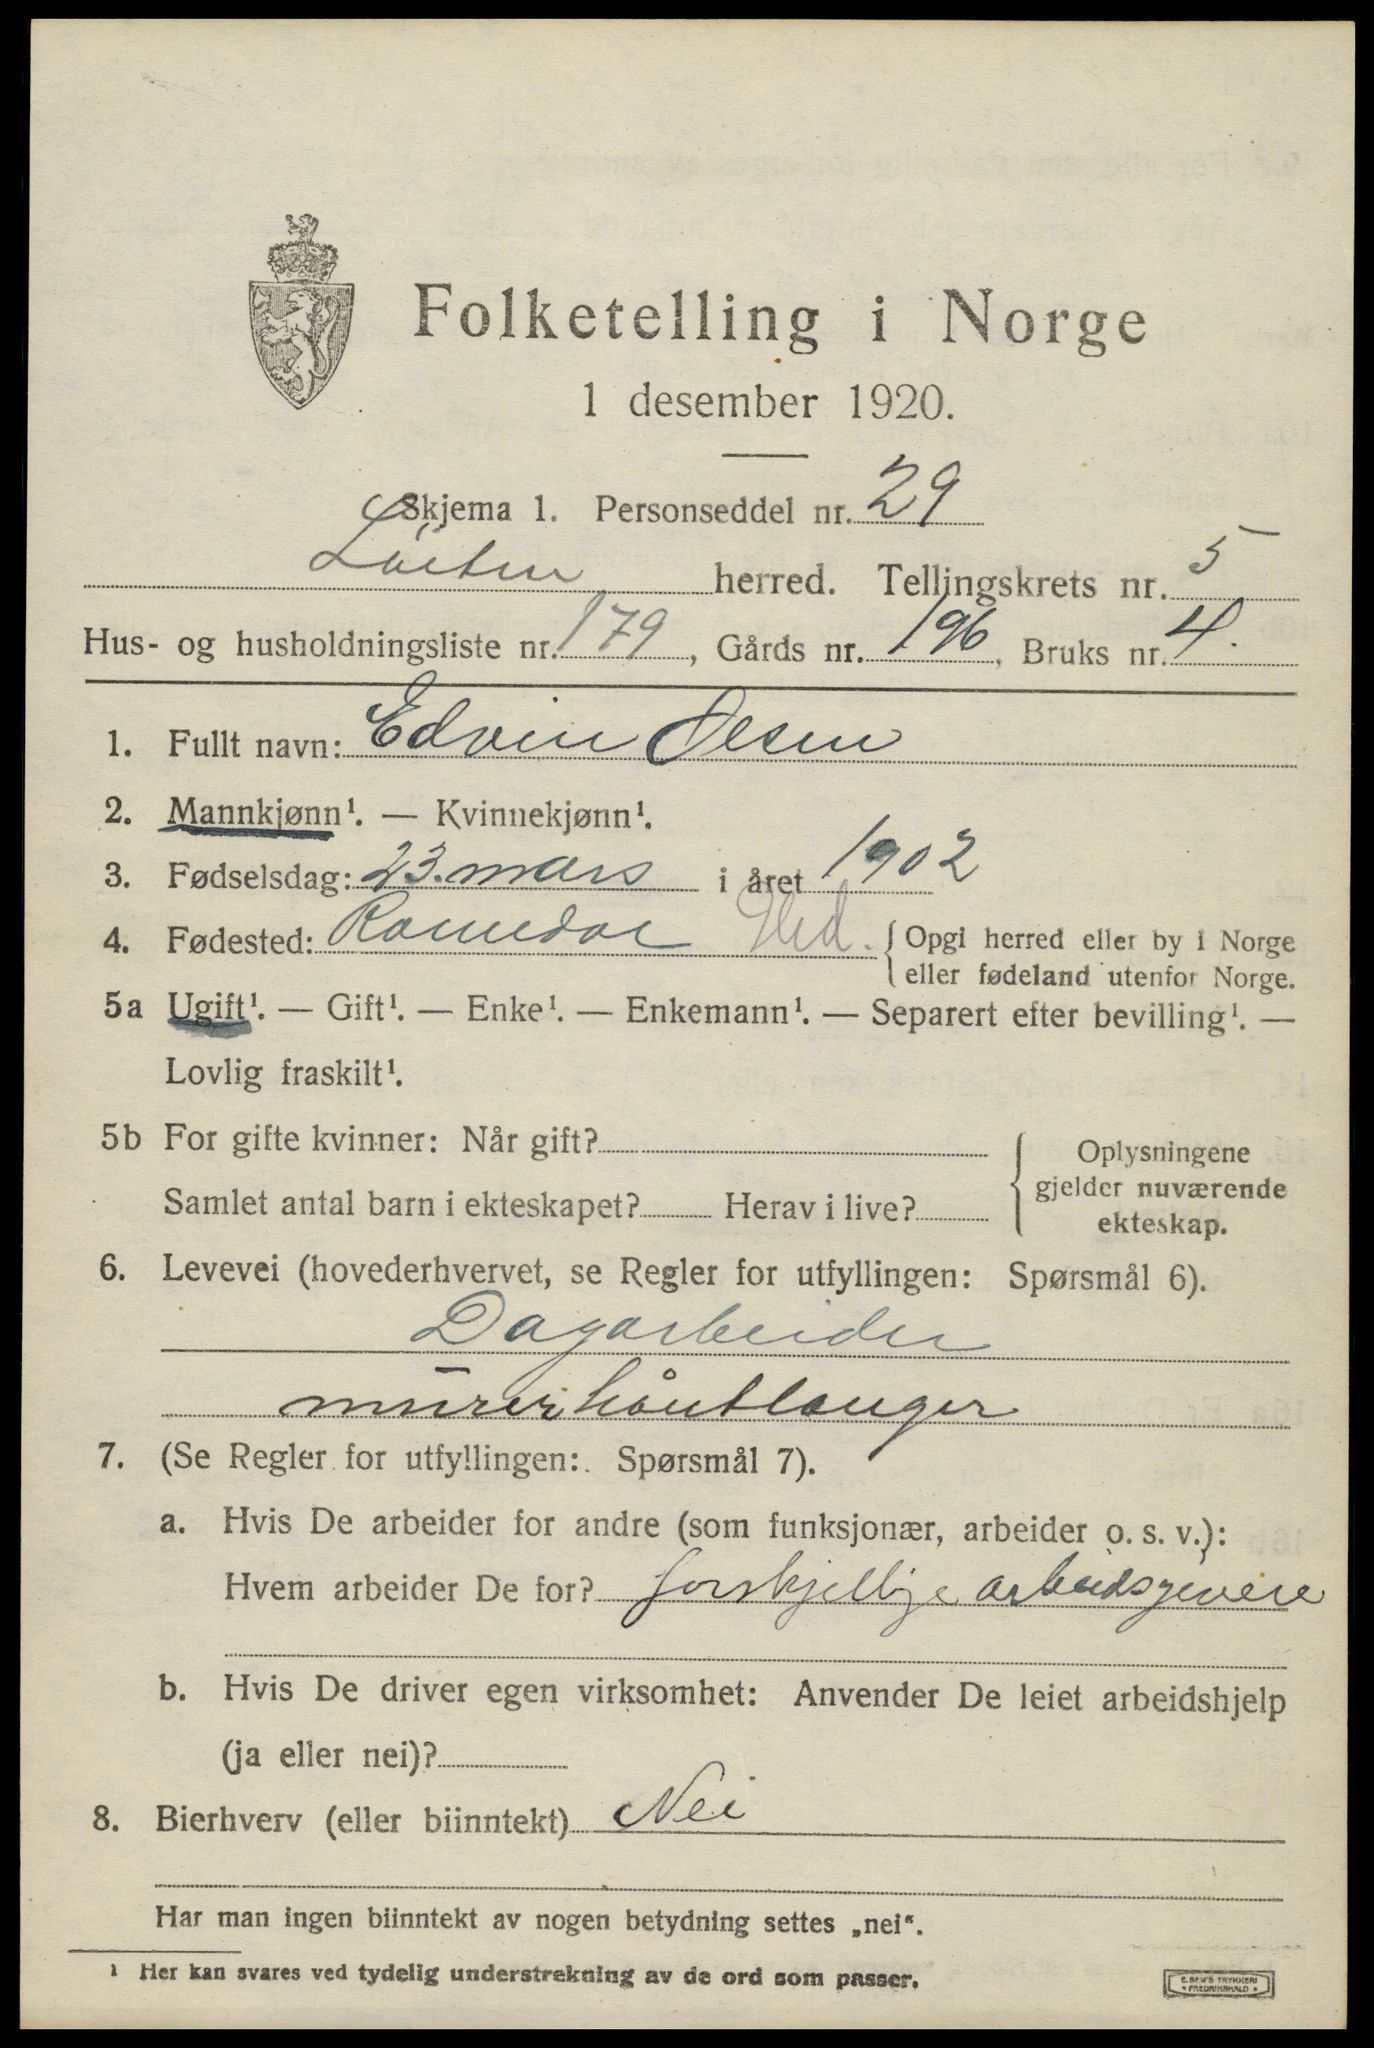 Folketelling i Norge
1 desember 1920.
Skjema 1. Personseddel nr. 29
Löiten herred. Tellingskrets nr. 5
Hus- og husholdningsliste nr. 179, Gårds nr. 196, Bruks nr. 4.
1. Fullt navn: Edvin Olsen
2. Mannkjønn¹. — Kvinnekjønn¹.
3. Fødselsdag: 23. mars i året 1902
4. Fødested: Romedal Hed. { Opgi herred eller by i Norge
eller fødeland utenfor Norge.
5a Ugift¹. — Gift¹. — Enke¹. — Enkemann¹. — Separert efter bevilling¹. —
Lovlig fraskilt¹.
5b For gifte kvinner: Når gift?
Samlet antal barn i ekteskapet? Herav i live?
{ Oplysningene
gjelder nuværende
ekteskap.
6. Levevei (hovederhvervet, se Regler for utfyllingen: Spørsmål 6).
Dagarbeider
murerhåntlanger
7. (Se Regler for utfyllingen: Spørsmål 7).
a. Hvis De arbeider for andre (som funksjonær, arbeider o. s. v.):
Hvem arbeider De for? forskjellige arbeidsgivere
b. Hvis De driver egen virksomhet: Anvender De leiet arbeidshjelp
(ja eller nei)?
8. Bierhverv (eller biinntekt) Nei
Har man ingen biinntekt av nogen betydning settes „nei“.
¹ Her kan svares ved tydelig understrekning av de ord som passer.
E. SEM'S TRYKKERI
• FREDRIKSHALD •